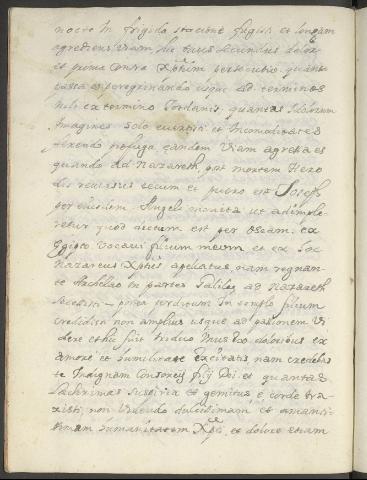 nocte in frigido tempore fugisti et longam
agrediens viam, hic tuus secundus dolor
et prima contra Xptum persecutio. quan
casta et peregrinando usque ad terminos
nili ex termino Jordanis, quantas Idolorum
Imagines solo evertisti et Incomoditates
ferendo profuga, eandem viam agressa es
quando ad Nazareth, post mortem Hero
dis reversus tecum et puero est Joseph
per eiusdem Angeli monita ut adimple
retur quod dictum est per Oseam. ex
Egipto vocavi filium meum et ex hoc
Nazareus Xptus apelatus, nam regnan
te Archelao in partes Galileę ad Nazareth
secessit — postea perditum in templo filium
credidisti non amplius usque ad pasionem vi
dere et hic fuit triduo multis doloribus ex
amore et humilitate excitatis nam credebas
te Indignam Consorcij filij Dei et quantas
Lachrimas suspiria et gemitus e corde tra
xisti, non videndo dulcissimam et amanti
ssimam humanitatem Xpti, et dolore etiam